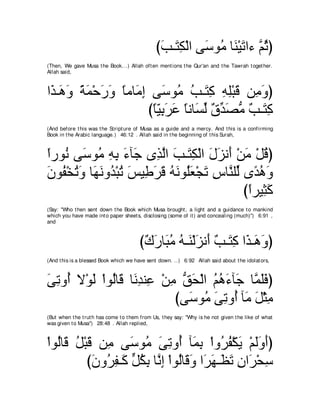 (ثُمَّ ءاتَيْنَا مُوسَى الْكِتَـبَ)
(Then, We gave Musa the Book...) Allah often mentions the Qur'an and the Tawrah together.
Allah said,
وَمِن قَبْلِهِ كِتَـبُ مُوسَى إِمَاماً وَرَحْمَةً وَهَـذَا)
(كِتَـبٌ مُّصَدِّقٌ لِّسَاناً عَرَبِيّاً
(And before this was the Scripture of Musa as a guide and a mercy. And this is a confirming
Book in the Arabic language.) 46:12 . Allah said in the beginning of this Surah,
قُلْ مَنْ أَنزَلَ الْكِتَـبَ الَّذِى جَآءَ بِهِ مُوسَى نُوراً)
وَهُدًى لِّلنَّاسِ تَجْعَلُونَهُ قَرَطِيسَ تُبْدُونَهَا وَتُخْفُونَ
(كَثِيراً
(Say: "Who then sent down the Book which Musa brought, a light and a guidance to mankind
which you have made into paper sheets, disclosing (some of it) and concealing (much)") 6:91 ,
and
(وَهَـذَا كِتَـبٌ أَنزَلْنَـهُ مُبَارَكٌ)
(And this is a blessed Book which we have sent down...) 6:92 Allah said about the idolators,
فَلَمَّا جَآءَهُمُ الْحَقُّ مِنْ عِندِنَا قَالُواْ لَوْلا أُوتِىَ)
(مِثْلَ مَآ أُوتِىَ مُوسَى
(But when the truth has come to them from Us, they say: "Why is he not given the like of what
was given to Musa") 28:48 . Allah replied,
أَوَلَمْ يَكْفُرُواْ بِمَآ أُوتِىَ مُوسَى مِن قَبْلُ قَالُواْ)
سِحْرَانِ تَظَـهَرَا وَقَالُواْ إِنَّا بِكُلٍّ كَـفِرُونَ)